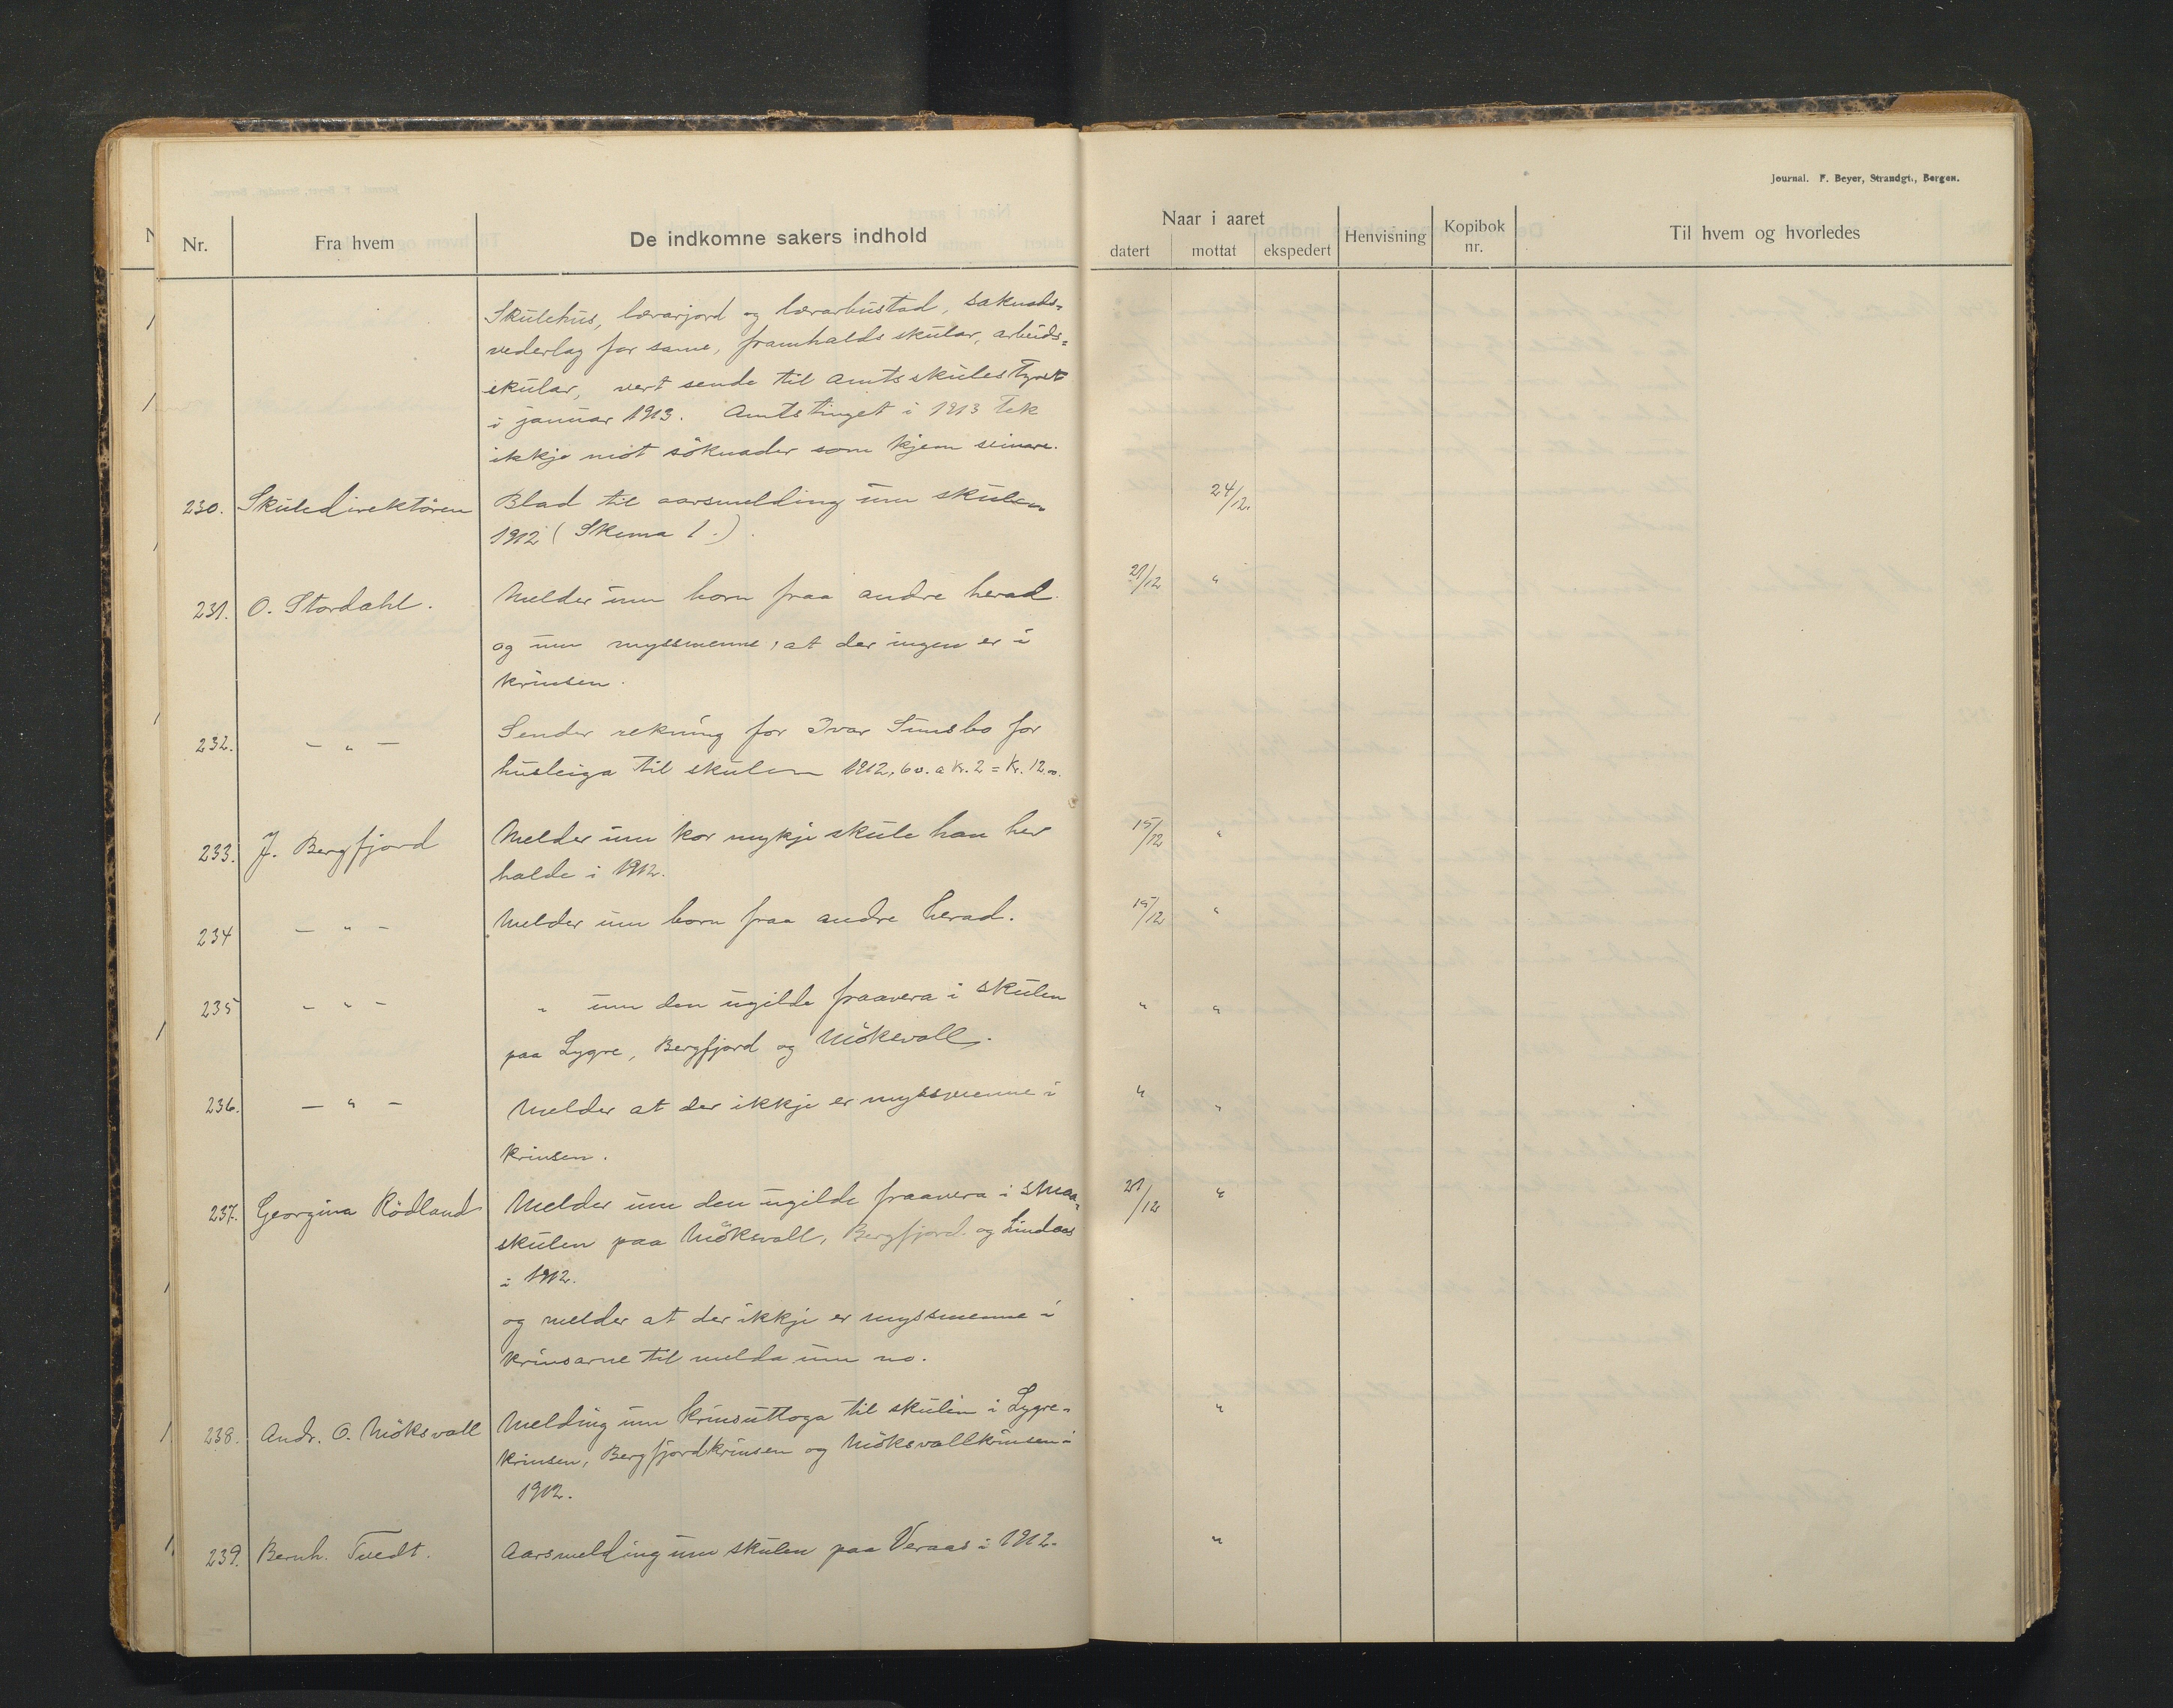 Journal. F. Beyer, Strandgt., Bergen.
Nr. Fra hvem De indkomne sakers indhold
Naar i aaret
datert mottat ekspedert Henvisning Kopibok nr. Til hvem og hvorledes
Skulehus, lærarjord og lærarbustad, saknads-
vederlag for same, framhaldsskular, arbeids-
skular, vert sende til Amtsskulestyret
i januar 1913. Amtstinget i 1913 tek
ikkje mot söknader som kjem seinare.
230. Skuledirektören Blad til aarsmelding um skulen 24/12.
1912 (Skema 1.).
231. O. Stordahl. Melder um born fraa andre herad 21/12 "
og um myssmenne, at der ingen er i
krinsen.
232. - " - Sender rekning for Ivar for
husleiga til skulen 1912, 6 v. a kr. 2 = kr. 12.00.
233. J. Bergfjord Melder um kor mykje skule han hev 15/12 "
halde i 1912.
234 - " - Melder um born fraa andre herad. 15/12 "
235 - " - " um den ugilde fraavera i skulen " "
paa Lygre, Bergfjord og Möksvoll.
236. - " - Melder at der ikkje er myssmenne i " "
krinsen.
237. Georgina Rödland Melder um den ugilde fraavera i smaa- 21/12 "
skulen paa Möksvoll, Bergfjord og Lindaas
i 1912.
og melder at der ikkje er myssmenne i
krinsarne til melda um no.
238. Andr. O. Möksvoll Melding um krinsuttoga til skulen i Lygre- "
krinsen, Bergfjordkrinsen og Möksvollkrinsen i
1912.
239. Bernh. Tvedt. Aarsmelding um skulen paa Veraas i 1912. "